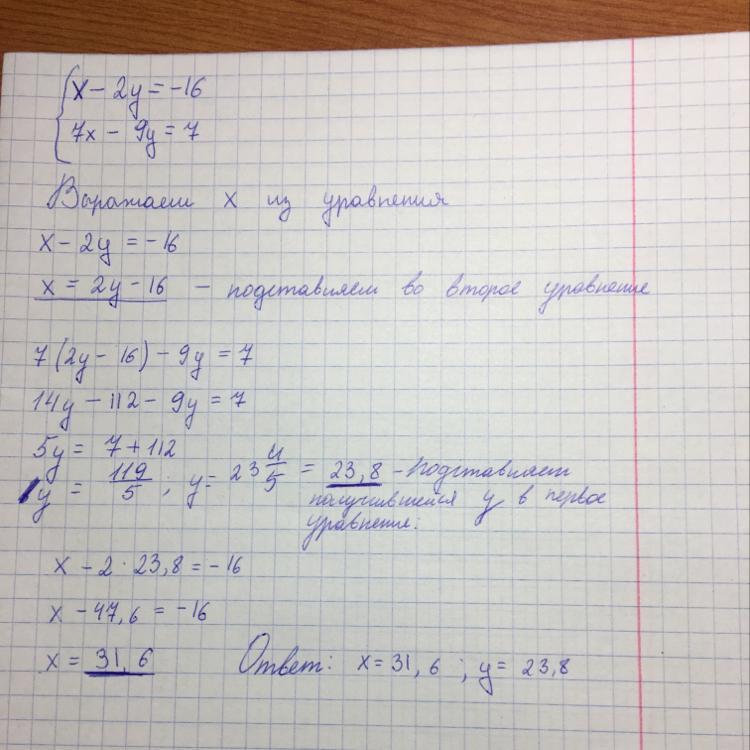 { x - 2y = -16
7x - 9y = 7
Выражаем x из уравнения
x - 2y = -16
x = 2y - 16 - подставляем во второе уравнение
7(2y - 16) - 9y = 7
14y - 112 - 9y = 7
5y = 7 + 112
y = 119/5 ; y = 23 4/5 = 23,8 - Подставляем
получившейся y в первое
уравнение:
x - 2 · 23,8 = -16
x - 47,6 = -16
x = 31,6 Ответ: x = 31,6 ; y = 23,8